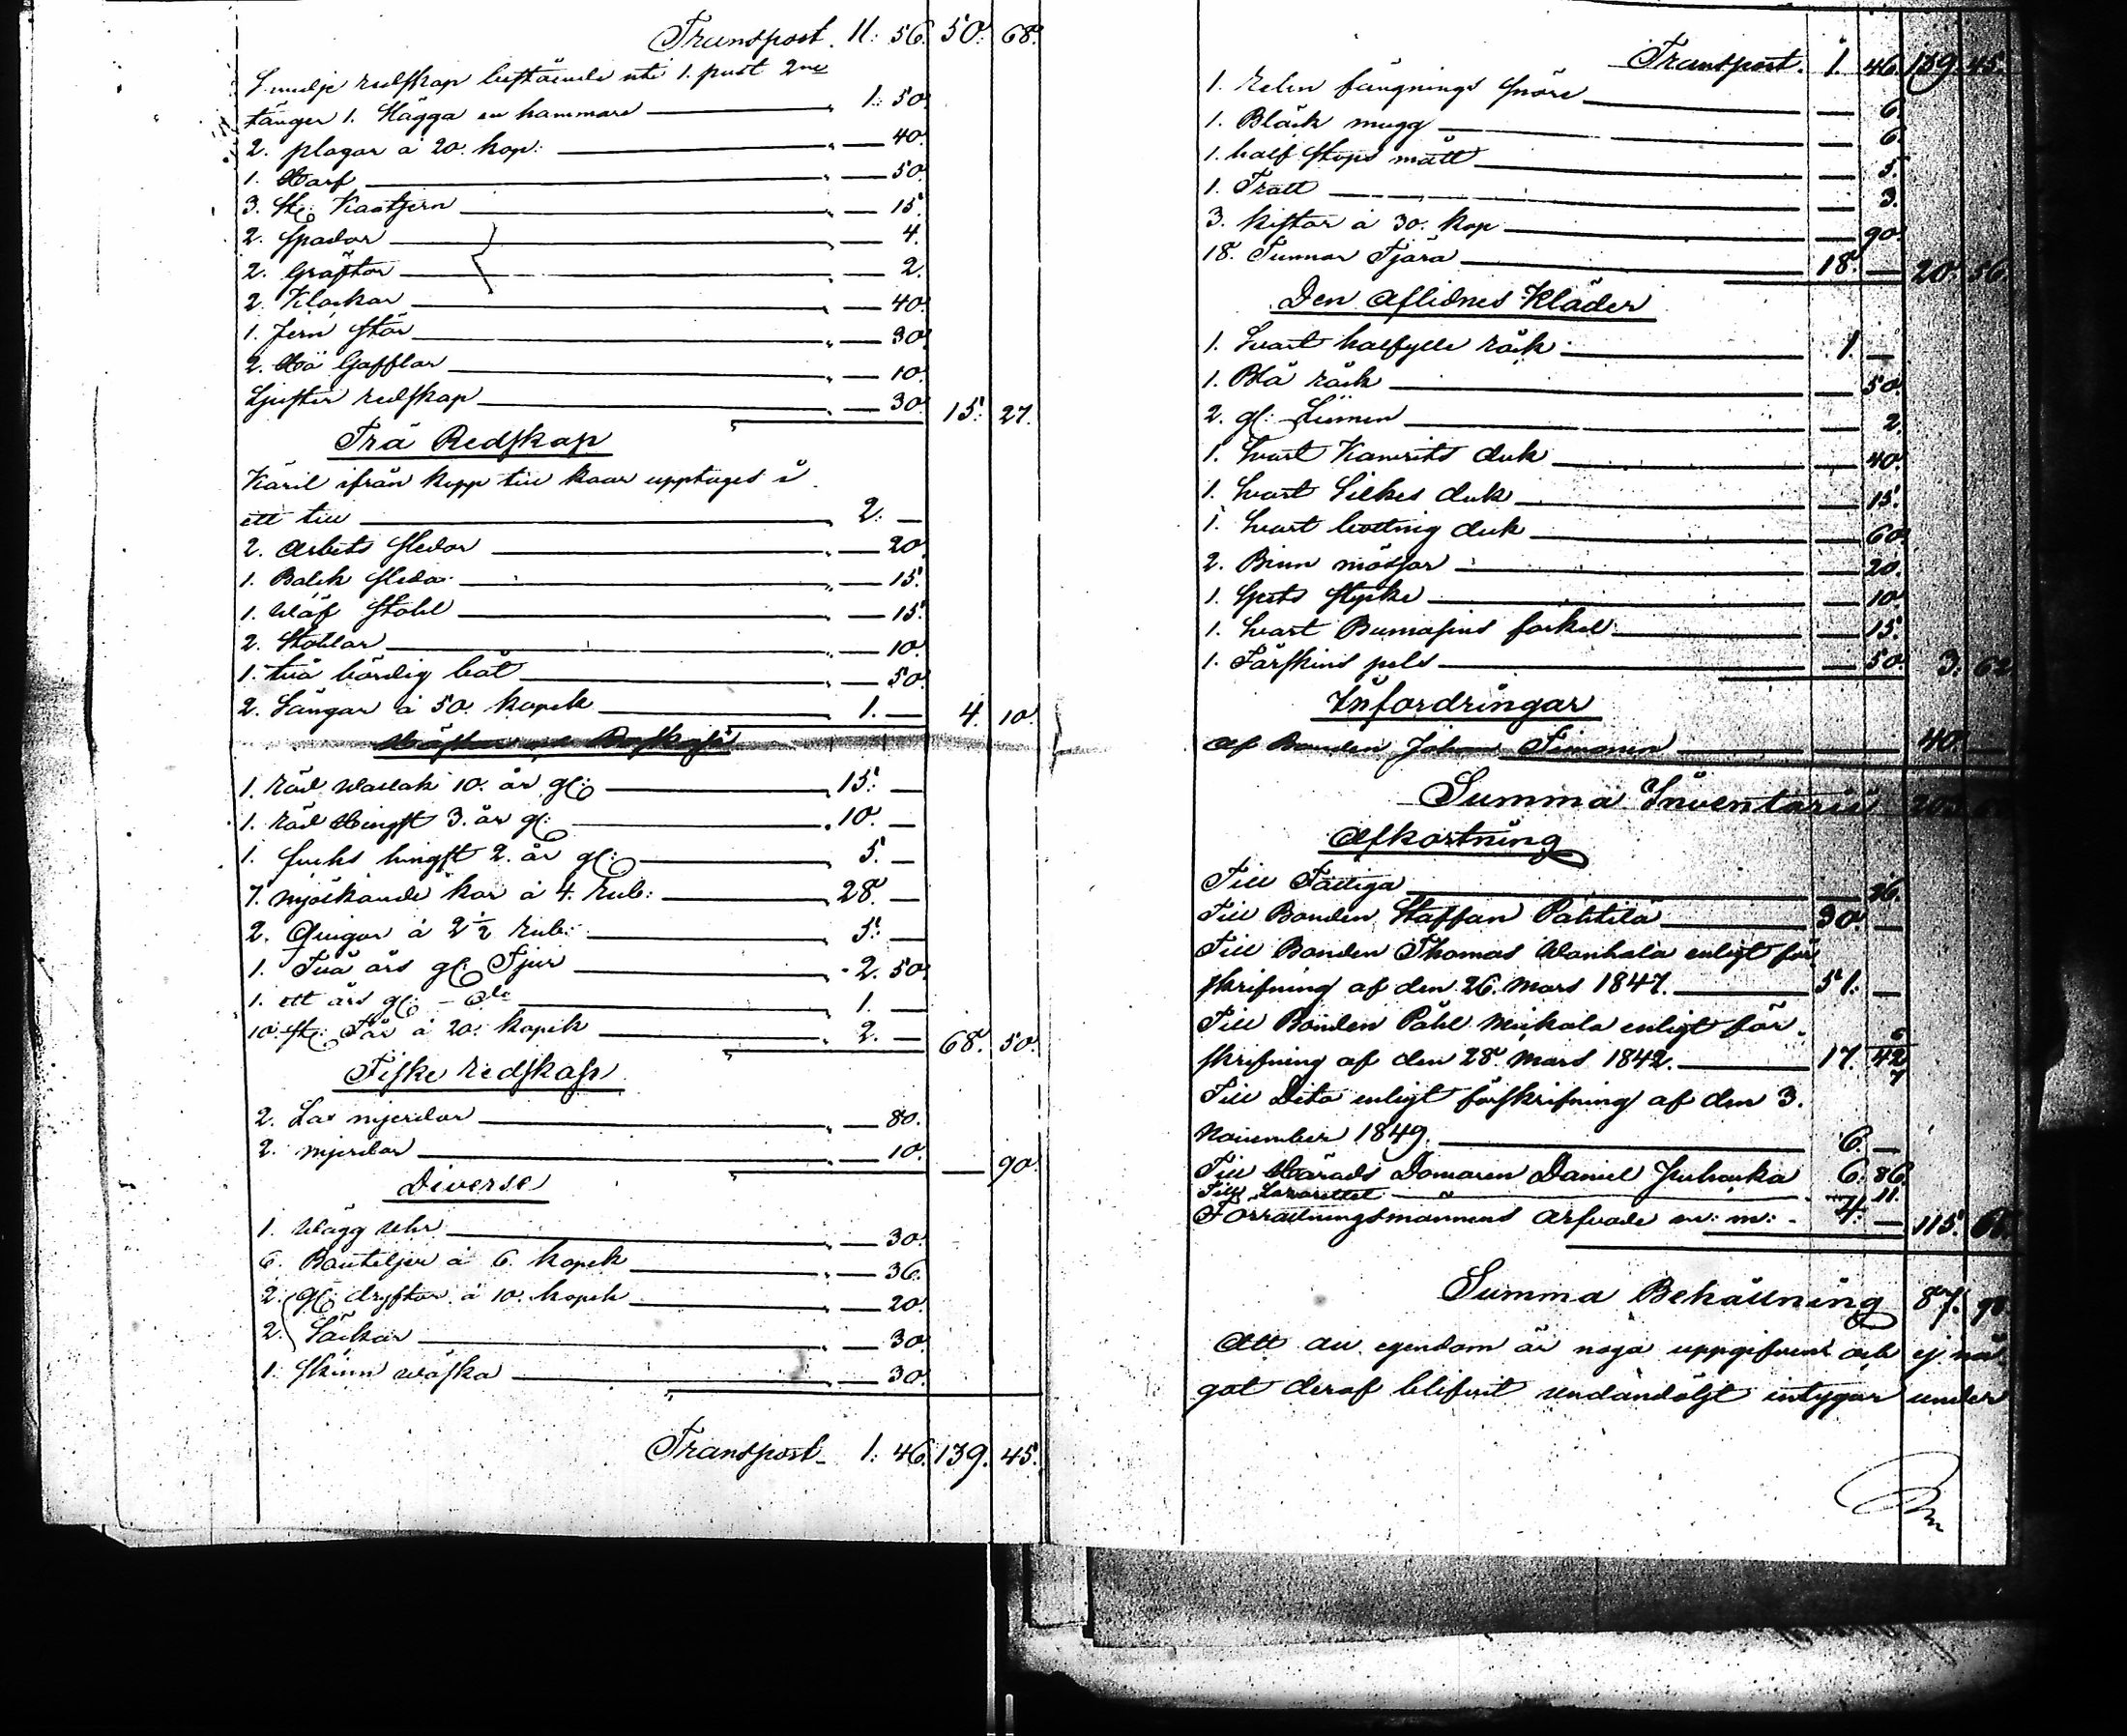 Transport. 11: 56. 50: 68.
Smidje redskap bestående uti 1. pust 2ne
tänger 1. slägga en hammare 1: 50.
2. plogar á 20. kop: 40.
1. Harf 50.
3. st: 15.
2. Spador 4.
2. Gräftor 2.
2. Klockor 40.
1. Jern stör 30.
2. Hö Gafflar 10.
Ljuster redskap 30. 15: 27.
Trä Redskap
Käril ifrån kopp till kaar upptages i
ett till 2. —
2. Arbets sledar 20.
1. sleda 15.
1. Wäf stohl 15.
2. Stohlar 10.
1. två bördig båt 50.
2. Sängar á 50. kopek 1. — 4. 10.
1. röd Wallak 10. år gl: 15. —
1. röd Hingst 3. år gl: 10. —
1. fuchs hingst 2. år gl: 5. —
7. mjölkande kor á 4. rub: 28. —
2. Qvigor á 2½ rub: 5: —
1. Två års gl: Tjur 2. 50.
1. ett års gl: — 1. —
10. st: Får á 20. kopek 2. — 68. 50.
Fiske redskap
2. Lax mjerdar 80.
2. mjerdar 10. — 90.
Diverse
1. Wägg Uhr 30.
6. Bouteljer á 6. kopek 36.
2. gl: á 10. kopek 20.
2. Säckar 30.
1. skinn wäska 30.
Transport 1: 46. 139. 45.
Transport. 1. 46. 139. 45.
1. fångnings snöre 6.
1. Bläck mugg 6.
1. half stops mått 5.
1. Tratt 3.
3. kistor á 30. kop 90.
18. Tunnor Tjära 18. — 20. 56.
Den Aflidnes Kläder
1. Svart halfylle råck 1. —
1. Blå råck 50.
2. gl: 2.
1. Svart duk 40.
1. Svart Silkes duk 15.
1. Svart duk 60.
2. Binn mössor 20.
1. Spets stycke 10.
1. Svart 15.
1. Fårskins pels 50. 3. 62
Infordringar
Af Bonden Johan 40.
Summa Inventarii
Afkortning
Till Fattiga 26.
Till Bonden Staffan Pahtila 30. —
Till Bonden Thomas Wanhala enligt för-
skrifning af den 26. Mars 1847. 51. —
Till Bonden Påhl enligt för-
skrifning af den 28. Mars 1842. 17. 42 6/7
Till Dito enligt förskrifning af den 3.
November 1849. 6. —
Till Härads Domaren Daniel Juhonka 6. 86.
Till Lazarettet 11.
Förrättningsmannens Arfvode m: m: 4. — 115.
Summa Behållning 87.
Att all egendom är noga uppgifven och ej nå-
got deraf blifvit undandöljt intygar under